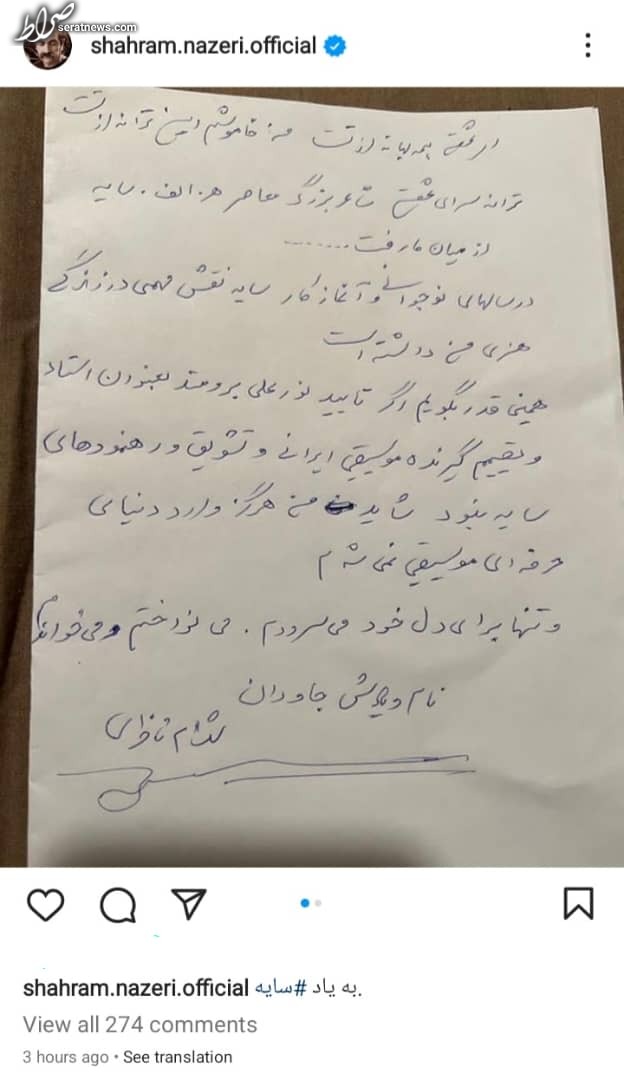 صراط
seratnews.com
shahram.nazeri.official
ای عشق همه بهانه از تست من خاموشم این ترانه از تست
ترانه سرای عشق شاعر بزرگ معاصر ه. الف. سایه
از میان ما رفت........
در سالهای نوجوانی و آغاز کار سایه نقش مهمی در زندگی
هنری من داشته است
همین قدر بگویم اگر تایید نورعلی برومند بعنوان استاد
و تصمیم گیرنده موسیقی ایرانی و تشویق و رهنمودهای
سایه نبود شاید من هرگز وارد دنیای
حرفه ای موسیقی نمی شدم
و تنها برای دل خود می سرودم. می نواختم و می خواندم
نام و یادش جاودان
شهرام ناظری
shahram.nazeri.official به یاد #سایه.
View all 274 comments
3 hours ago • See translation